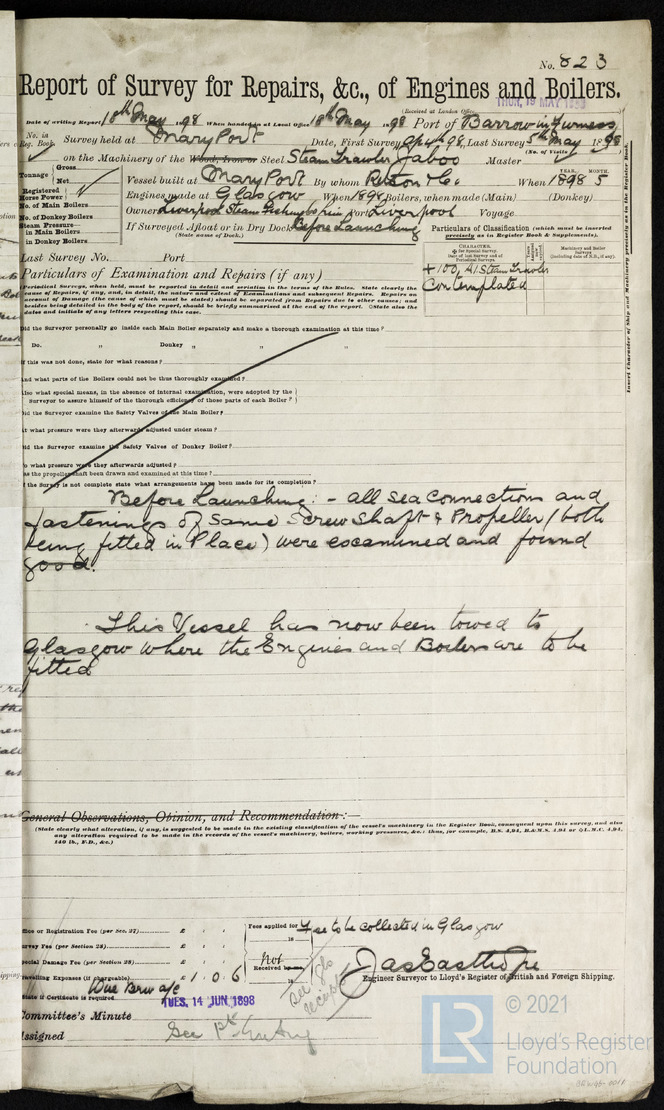 No. 823
Report of Survey for Repairs, &c., of Engines and Boilers.
(Received at London Office
THUR, 19 MAY 1898
Date of writing Report 18th May 1898 When handed in at Local Office 18th May 1898 Port of Barrow in Furness
No. in Reg. Book. Survey held at Mary Port Date, First Survey Ap 4th 98, Last Survey 5th May 1898
(No. of Visits)
on the Machinery of the Wood, Iron or Steel Steam Trawler Jaboo Master
Tonnage Gross Net
Vessel built at Mary Port By whom Ritson & Co When 1898 5
YEAR. MONTH.
Registered Horse Power
Engines made at Glasgow When 1898 Boilers, when made (Main) (Donkey)
No. of Main Boilers
No. of Donkey Boilers
Steam Pressure—
in Main Boilers
in Donkey Boilers
Owners Liverpool Steam Fishing Port Liverpool Voyage
If Surveyed Afloat or in Dry Dock Before Launching
(State name of Dock.)
Particulars of Classification (which must be inserted precisely as in Register Book & Supplements).
Last Survey No. Port
CHARACTER.
Machinery and Boiler Surveys
+100 A1 Steam Trawler
Contemplated
Particulars of Examination and Repairs (if any)
Periodical Surveys, when held, must be reported in detail and seriatim in the terms of the Rules. State clearly the
cause of Repairs, if any, and, in detail, the nature and extent of Examinations and subsequent Repairs. Repairs on
account of Damage (the cause of which must be stated) should be separated from Repairs due to other causes; and
besides being detailed in the body of the report, should be briefly summarised at the end of the report. State also the
dates and initials of any letters respecting this case.
Insert Character of Ship and Machinery precisely as in the Register Book.
Did the Surveyor personally go inside each Main Boiler separately and make a thorough examination at this time?
Do. „ Donkey „ „ „
If this was not done, state for what reasons?
And what parts of the Boilers could not be thus thoroughly examined?
Also what special means, in the absence of internal examination, were adopted by the
Surveyor to assure himself of the thorough efficiency of those parts of each Boiler?
Did the Surveyor examine the Safety Valves of the Main Boiler?
At what pressure were they afterwards adjusted under steam?
Did the Surveyor examine the Safety Valves of Donkey Boiler?
To what pressure were they afterwards adjusted?
Has the propeller shaft been drawn and examined at this time?
If the Survey is not complete state what arrangements have been made for its completion?
Before Launching: - all sea connections and
fastenings of same Screw shaft & Propeller (both
being fitted in Place) were examined and found
good.
This Vessel has now been towed to
Glasgow where the Engines and Boilers are to be
fitted
General Observations, Opinion, and Recommendation:—
(State clearly what alteration, if any, is suggested to be made in the existing classification of the vessel's machinery in the Register Book, consequent upon this survey, and also
any alteration required to be made in the records of the vessel's machinery, boilers, working pressures, &c.: thus, for example, B.S. 4,94, B.&M.S. 4,94 or L.M.C. 4,94,
140 lb., F.D., &c.)
Office or Registration Fee (per Sec. 27) £
Fees applied for Fee to be collected in Glasgow
18
Survey Fee (per Section 28) £
Special Damage Fee (per Section 28) £
Not Received by me,
18
Travelling Expenses (if chargeable) £ 1 0 6
Jas Easthope
Engineer Surveyor to Lloyd's Register of British and Foreign Shipping.
State if Certificate is required
TUES. 14 JUN 1898
Committee's Minute
Assigned
© 2021
LR
Lloyd's Register
Foundation